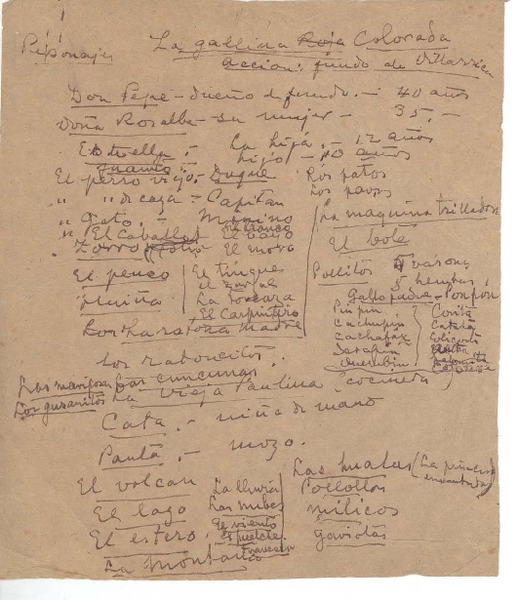 Personajes
La gallina Roja Colorada
Acción: fundo de Villarrica
Don Pepe - dueño de fundo. - 40 años
Doña Rosalba - su mujer - 35. -
Estrella. - La hija. - 12 años
Juanito - hijo - 10 años
El perro viejo. - Duque
Los patos
" " de caza = Capitan
Los pavos
" Gato. - Minino
La maquina trilladora
" El Caballo
El bayo
El bote
Zorro
El moro
El peuco
El tiuque
El zorzal
Pollitos 5 varones
5 hembras
La torcaza
Gallo padre - Ponpon
El Carpintero
Pin pin
Cachupin
Cachafaz
Serafin
Querubin
La ratona Madre
Los ratoncitos.
Las mariposas Las cuncunas
Los gusanitos
La vieja Paulina (cocinera)
Cata. - niña de mano
Panta. - mozo.
El volcan
La lluvia
Las nubes
El lago
El viento
El puelche
El estero.
La montaña
Las hualas
Pollollos
milicos
gaviotas